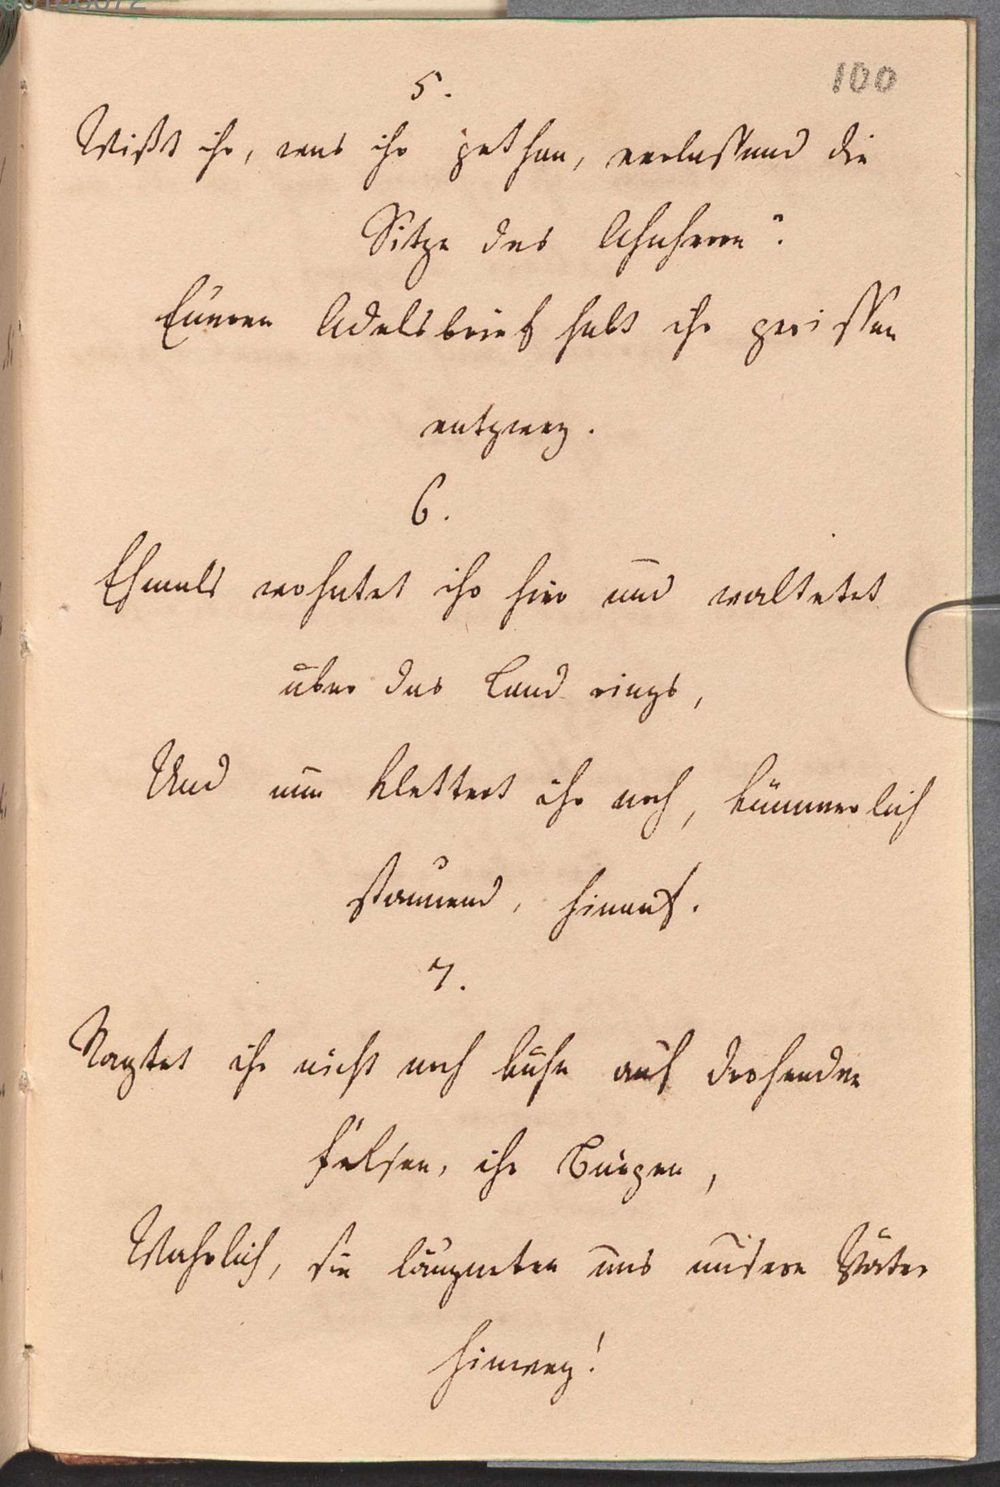 100
5.
Wißt ihr, was ihr gethan, verlassend die
Sitze des Ahnherrn?
Eueren Adelsbrief habt ihr gerissen
entzwey.
6.
Ehmals wohntet ihr hier und waltetet
über das Land rings,
Und nun klettert ihr noch, kümmerlich
staunend, hinauf.
7.
Ragtet ihr nicht noch kühn auf drohenden
Felsen, ihr Burgen,
Wahrlich, sie läugneten uns unsere Väter
hinweg!